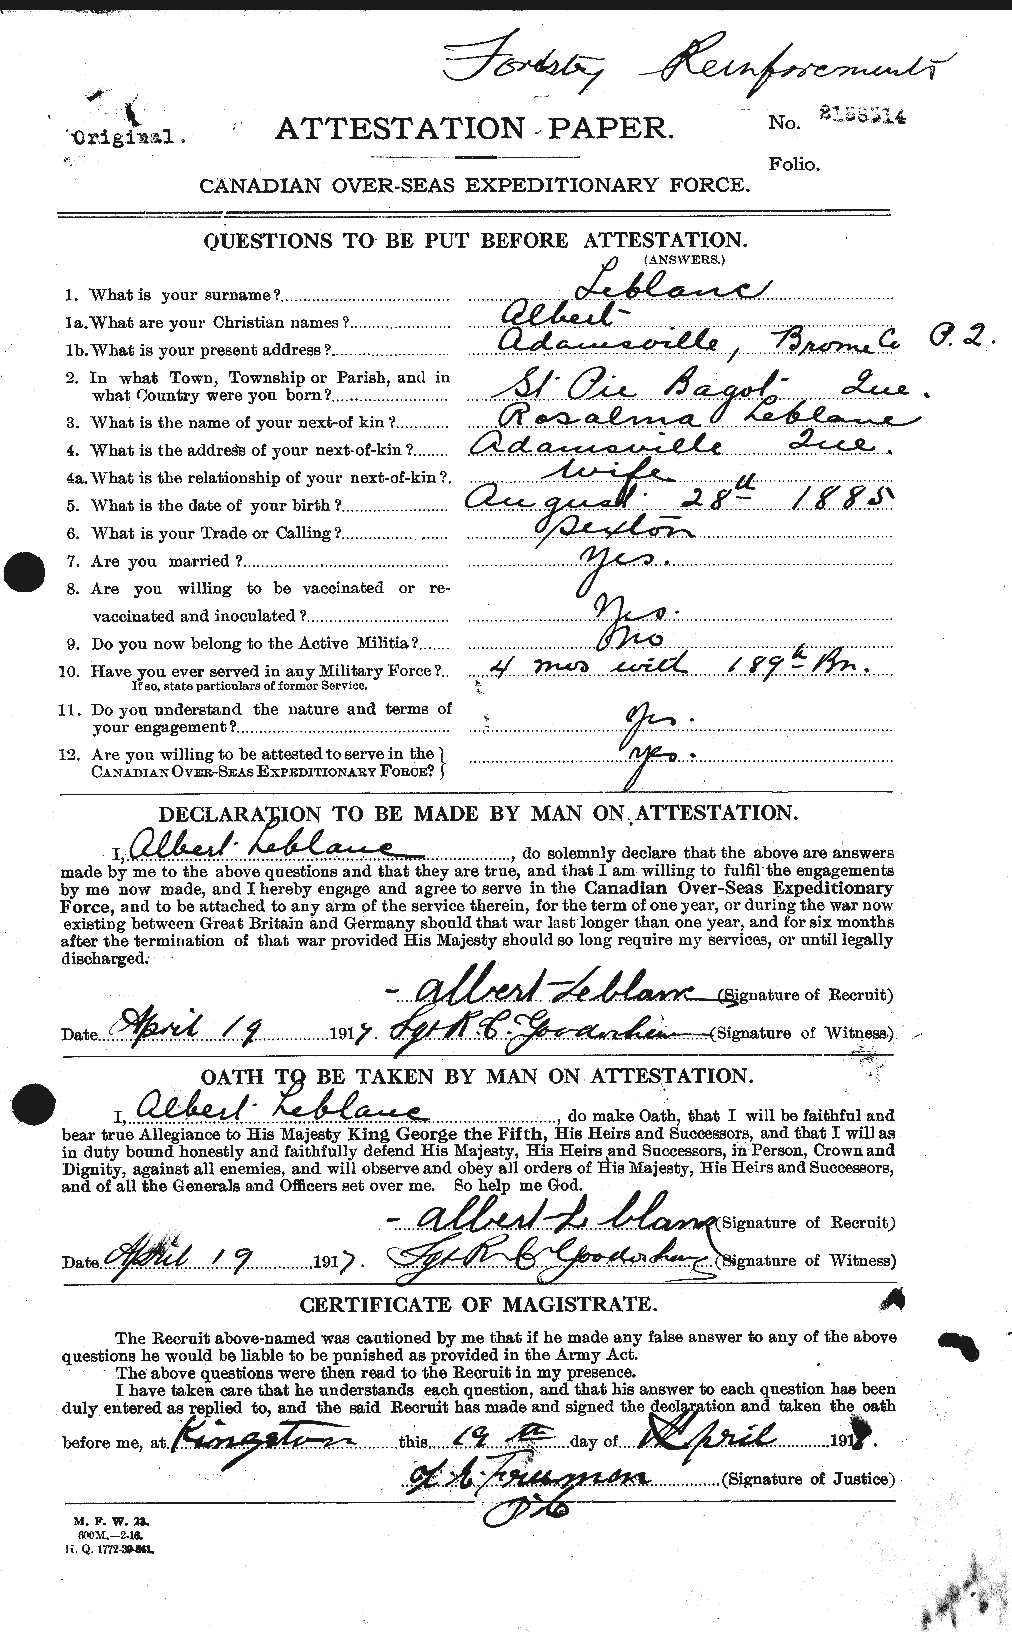 Forestry Reinforcements
Original.
ATTESTATION PAPER.
No.
Folio.
CANADIAN OVER-SEAS EXPEDITIONARY FORCE.
QUESTIONS TO BE PUT BEFORE ATTESTATION.
(ANSWERS.)
1. What is your surname? Leblanc
1a. What are your Christian names? Albert
1b. What is your present address? Adamsville, Brome Co P.Q.
2. In what Town, Township or Parish, and in
what Country were you born? St Pie Bagot Que.
3. What is the name of your next-of kin? Rosalma Leblanc
4. What is the address of your next-of-kin? Adamsville Que.
4a. What is the relationship of your next-of-kin? Wife
5. What is the date of your birth? August 28th 1885
6. What is your Trade or Calling? Sexton
7. Are you married? Yes.
8. Are you willing to be vaccinated or re-
vaccinated and inoculated? Yes.
9. Do you now belong to the Active Militia? No
10. Have you ever served in any Military Force? 4 mos with 189th Bn.
If so, state particulars of former Service.
11. Do you understand the nature and terms of
your engagement? Yes.
12. Are you willing to be attested to serve in the
CANADIAN OVER-SEAS EXPEDITIONARY FORCE? Yes.
DECLARATION TO BE MADE BY MAN ON ATTESTATION.
I, Albert Leblanc, do solemnly declare that the above are answers
made by me to the above questions and that they are true, and that I am willing to fulfil the engagements
by me now made, and I hereby engage and agree to serve in the Canadian Over-Seas Expeditionary
Force, and to be attached to any arm of the service therein, for the term of one year, or during the war now
existing between Great Britain and Germany should that war last longer than one year, and for six months
after the termination of that war provided His Majesty should so long require my services, or until legally
discharged.
- Albert Leblanc (Signature of Recruit)
Date April 19 1917. Sgt R. C. Gooderham (Signature of Witness)
OATH TO BE TAKEN BY MAN ON ATTESTATION.
I, Albert Leblanc, do make Oath, that I will be faithful and
bear true Allegiance to His Majesty King George the Fifth, His Heirs and Successors, and that I will as
in duty bound honestly and faithfully defend His Majesty, His Heirs and Successors, in Person, Crown and
Dignity, against all enemies, and will observe and obey all orders of His Majesty, His Heirs and Successors,
and of all the Generals and Officers set over me. So help me God.
- Albert Leblanc (Signature of Recruit)
Date April 19 1917. Sgt R C Gooderham (Signature of Witness)
CERTIFICATE OF MAGISTRATE.
The Recruit above-named was cautioned by me that if he made any false answer to any of the above
questions he would be liable to be punished as provided in the Army Act.
The above questions were then read to the Recruit in my presence.
I have taken care that he understands each question, and that his answer to each question has been
duly entered as replied to, and the said Recruit has made and signed the declaration and taken the oath
before me, at Kingston this 19th day of April 191
(Signature of Justice)
M. F. W. 23.
600M.—2-16.
H. Q. 1772-39-841.